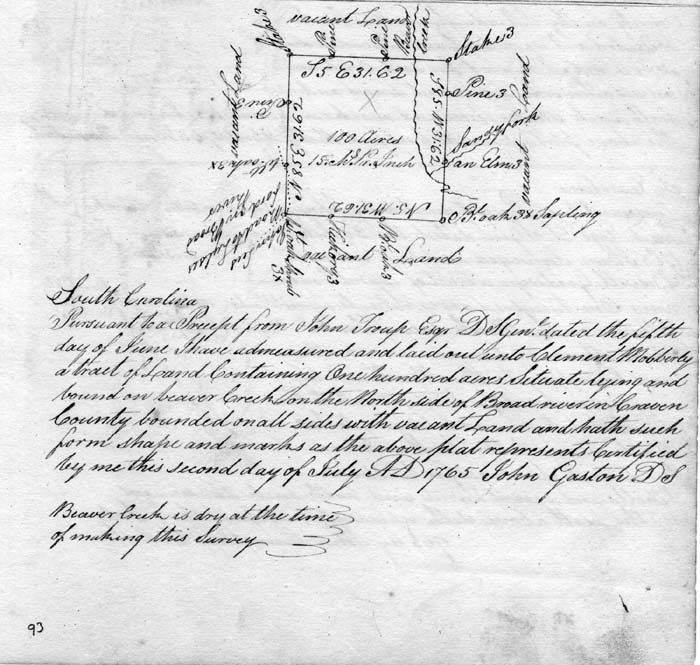 vacant Land
Stake 3
Pine
Pine
Beaver
Creek
Stake 3
S5 E 31.62
Pine 3
vacant Land
Pine 3
S85 W 31.62
vacant Land
100 Acres
15 chs Pr. Inch
an Elm 3
N5 W 31.62
Bt oak 3x Sapling
Hickory 3
3x
vacant Land
South Carolina
Pursuant to a Precept from John Troup Esqr D S Genl dated the fifth
day of June I have admeasured and laid out unto Clement Mobberly
a tract of Land Containing One hundred acres Situate lying and
bound on beaver Creek on the North side of Broad river in Craven
County bounded on all sides with vacant Land and hath such
form shape and marks as the above plat represents Certified
by me this second day of July AD 1765 John Gaston D S
Beaver Creek is dry at the time
of making this Survey
93